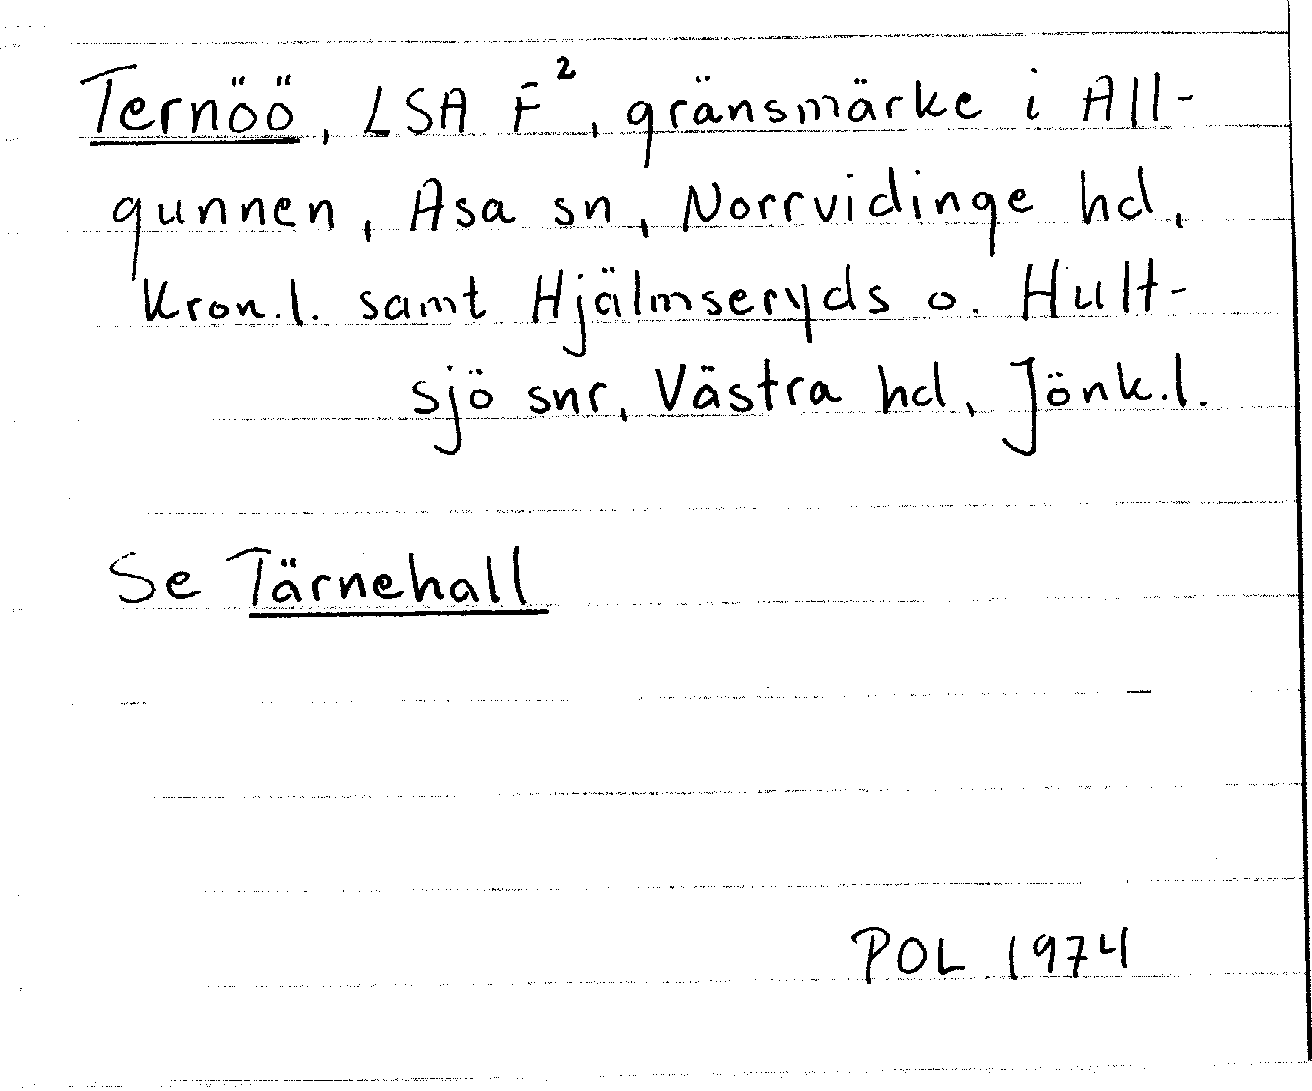 Ternöö, LSA F², gränsmärke i All-
gunnen, Asa sn, Norrvidinge hd,
Kron.l. samt Hjälmseryds o. Hult-
sjö snr, Västra hd, Jönk.l.
Se Tärnehall
POL 1974